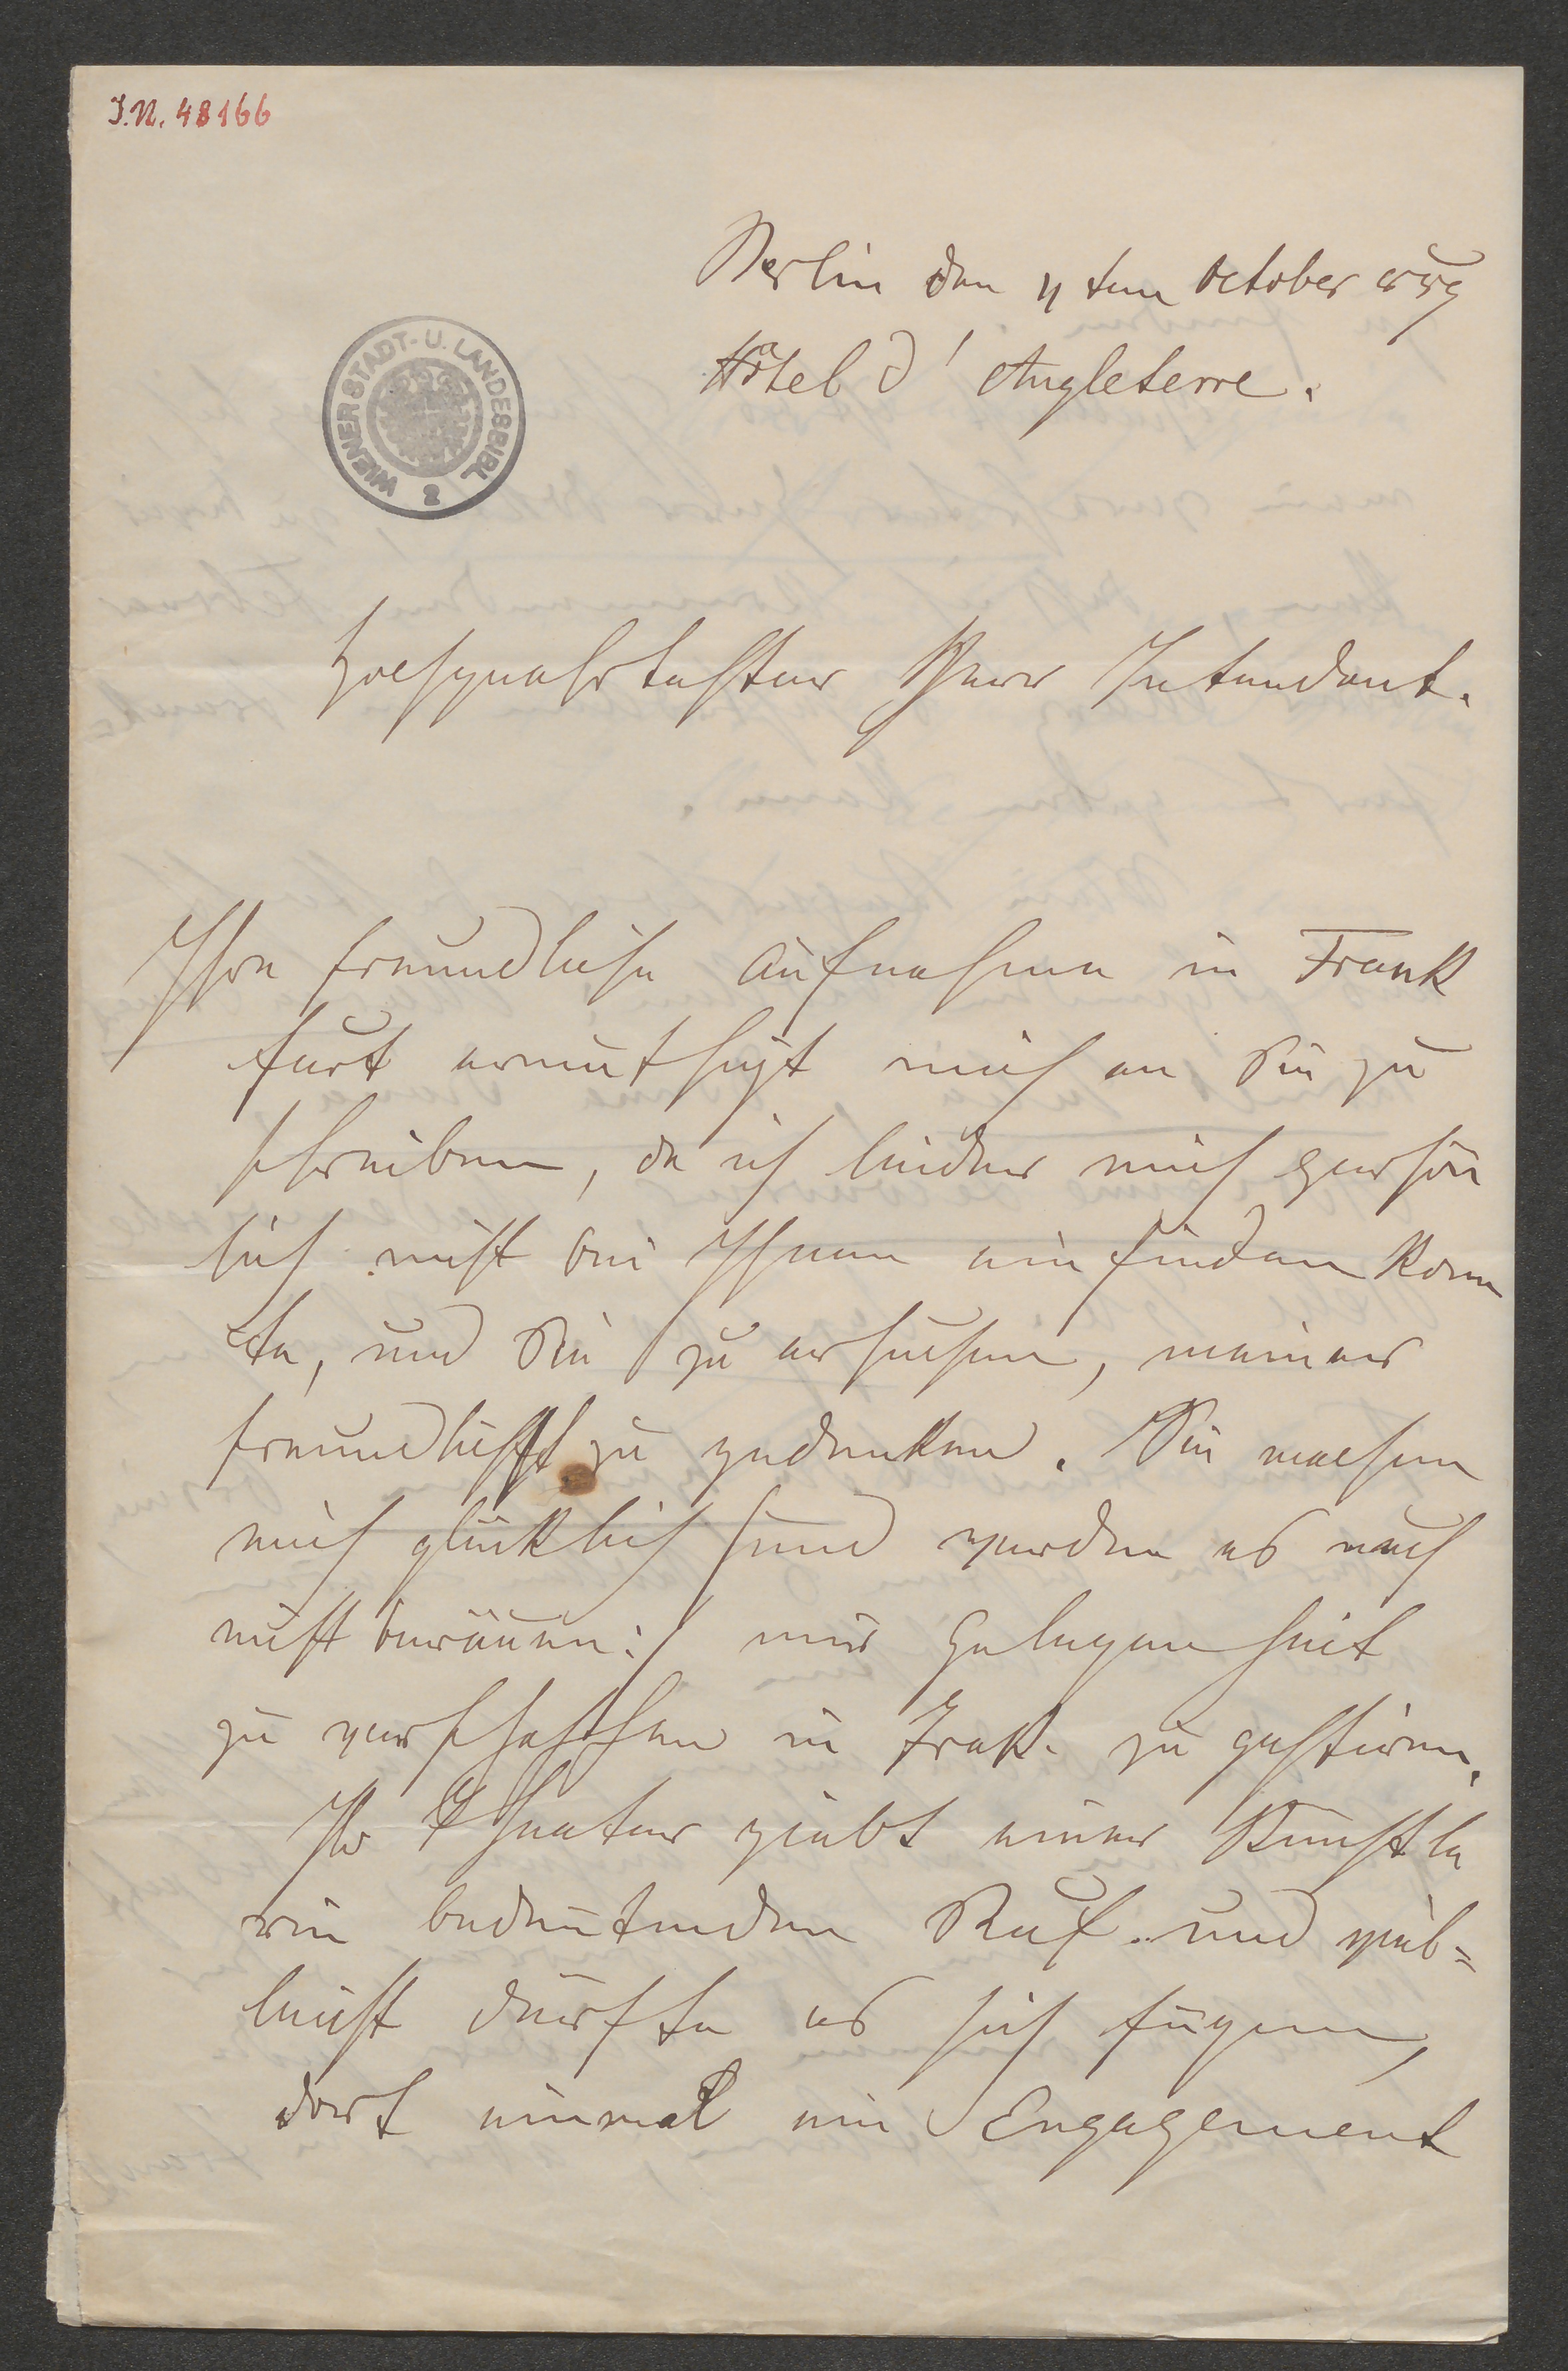 I.N. 48166
Berlin den 4ten October
Hôtel d'Angleterre.
WIENER STADT- U. LANDESBIBL.
2
Hochgeehrtester Herr Intendant.
Ihre freundliche Aufnahme in Frank
furt ermuthigt mich an Sie zu
schreiben, da ich leider mich persön
lich nicht bei Ihnen einfinden konn
te, und Sie zu ersuchen, meiner
freundlichst zu gedenken. Sie machen
mich glücklich /:und werden es auch
nicht bereuen:/ mir Gelegenheit
zu verschaffen in Frak. zu gastiren.
Ihr Theater giebt einer Künstle
rin bedeutenden Ruf und viel=
leicht dürfte es sich fügen,
dort einmal ein Engagement